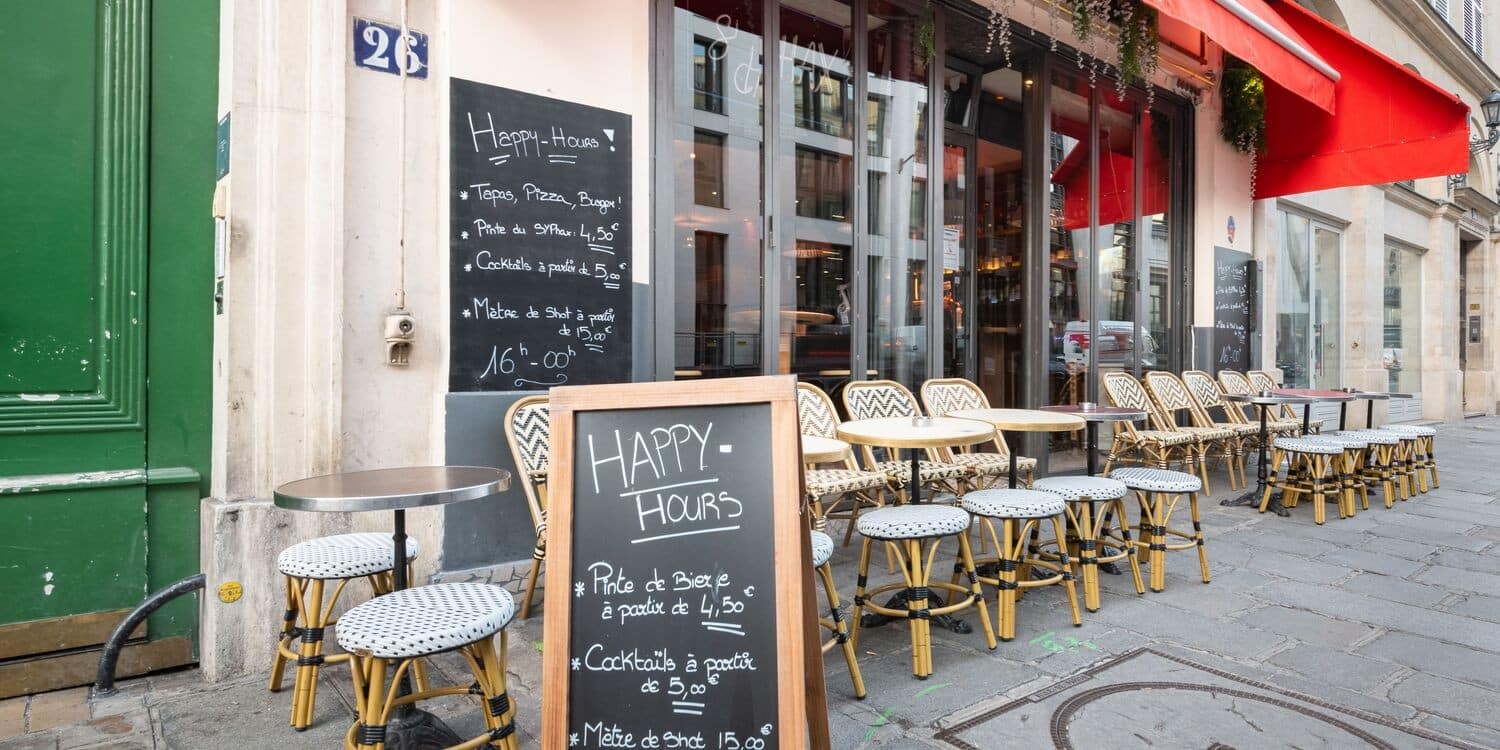 26
Happy-Hours!
* Tapas, Pizza, Burger!
* Pinte du SYPhax: 4,50€
* Cocktails à partir de 5,00€
* Mètre de Shot à partir
de 15,00€
16h-00h
HAPPY-
HOURS
* Pinte de Bière
à partir de 4,50€
* Cocktails à partir
de 5,00€
* Mètre de Shot 15,00€
Happy-Hours!
16h-00h